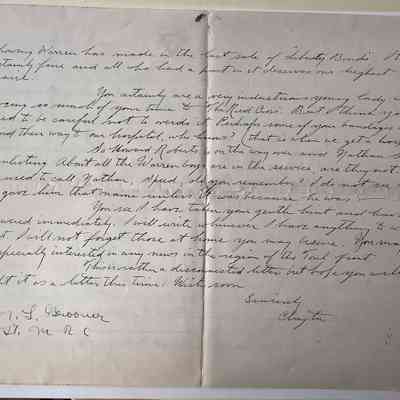 showing Warren has made in the last sale of Liberty Bonds. It
certainly fine and all who had a part in it deserves our highest
You certainly are a very industrious young lady
so much of your time to the Red Cross. But I think you
to be careful not to overdo it. Perhaps some of your bandages
find their way to our hospital, who knows? (that is when we get a hosp
So Howard Roberts is on the way over and Nathan
enlisting. About all the Warren boys are in the service, are they not
used to call Nathan, Speed, do you remember? I do not see
gave him that name unless it was because he was
You see I have taken your gentle hint and have
answered immediately. I will write whenever I have anything to
I will not forget those at home you may be sure. You may
especially interested in any news in the region of the front
This is rather a disconnected letter but hope you will
it as a letter this time. Write soon
Sincerely
Clayton
St. M R C